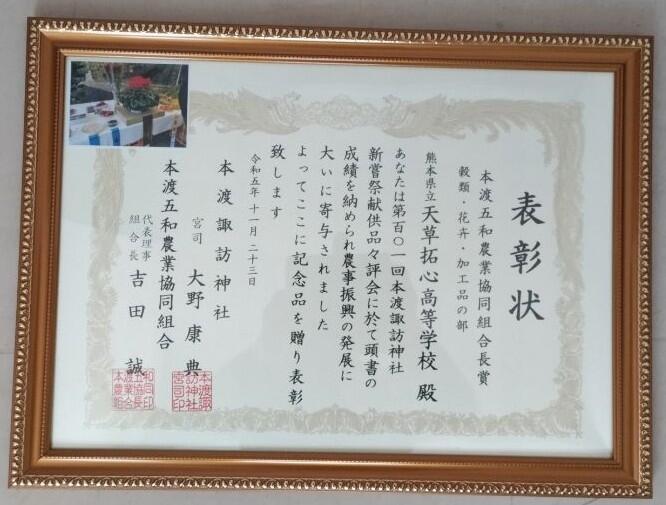 表彰状
本渡五和農業協同組合長賞
穀類・花卉・加工品の部
熊本県立天草拓心高等学校 殿
あなたは第百〇一回本渡諏訪神社
新嘗祭献供品々評会に於て頭書の
成績を納められ農事振興の発展に
大いに寄与されました
よってここに記念品を贈り表彰
致します
令和五年十一月二十三日
本渡諏訪神社
宮司 大野康典
本渡諏訪神社宮司印
本渡五和農業協同組合
代表理事組合長 吉田 誠